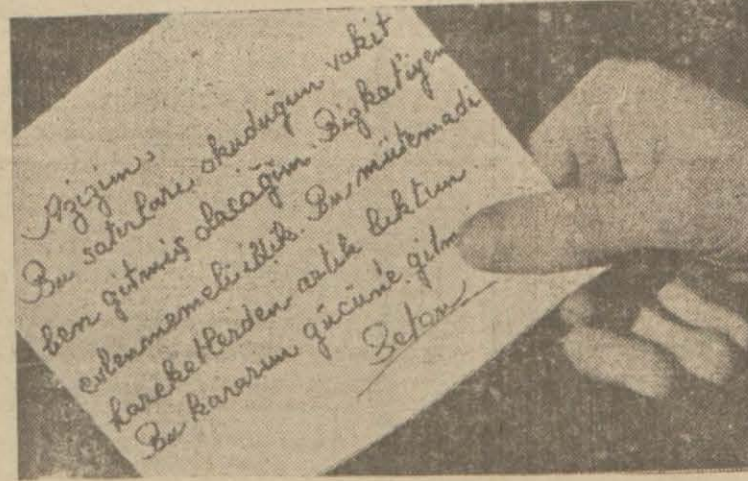 Azizim,
Bu satırları okuduğun vakit
ben gitmiş olacağım. Biz kat'iyen
evlenmemeli idik. Bu mütemadi
hareketlerden artık bıktım
Bu kararım gücüne gitm